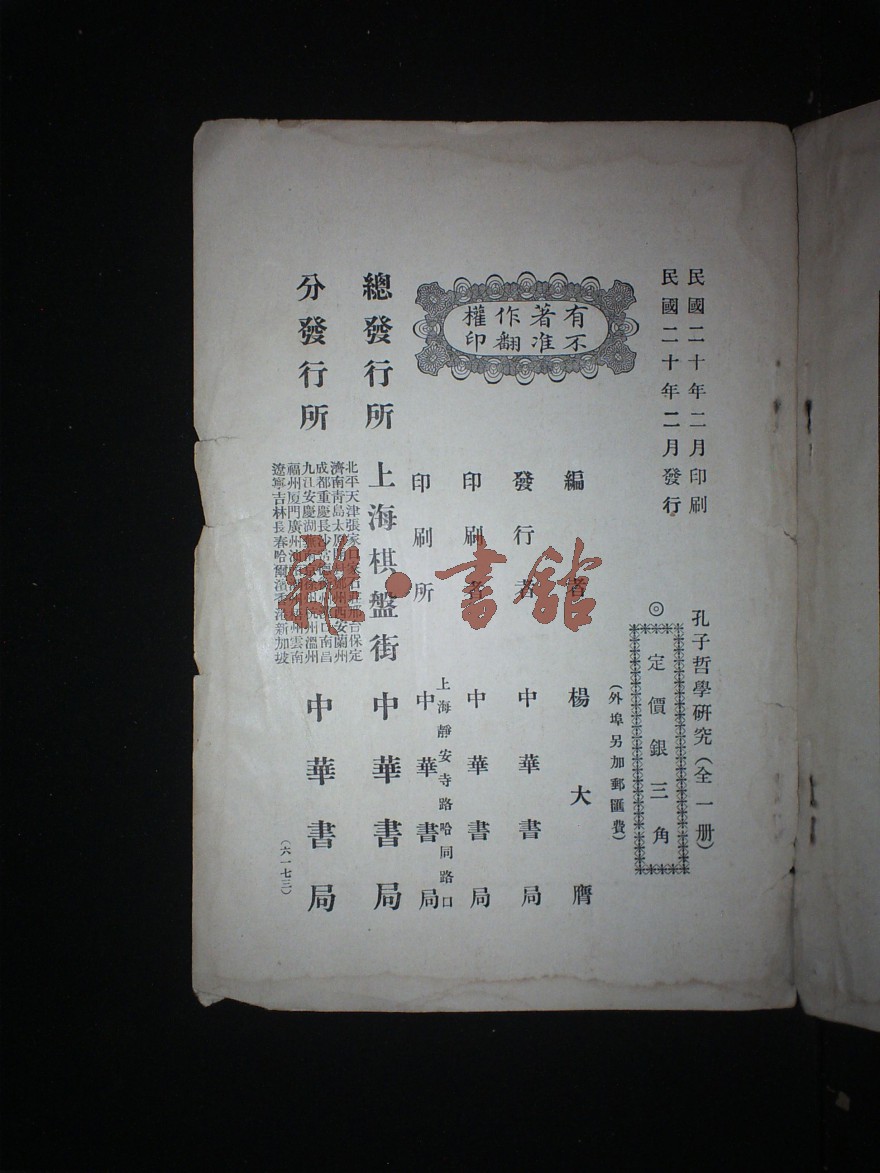 民國二十年二月印刷
民國二十年二月發行
孔子哲學研究（全一册）
◎定價銀三角
（外埠另加郵匯費）
有著作權
不准翻印
編者 楊大膺
發行者 中華書局
印刷者 中華書局
上海靜安寺路哈同路口
印刷所 中華書局
總發行所 上海棋盤街 中華書局
分發行所 中華書局
北平天津張家口 邢台保定
濟南青島太原 州西安蘭州
成都重慶長沙 口南昌
九江安慶 杭州溫州
福州厦門廣州 州雲南
遼寧吉林長春哈爾濱香港新加坡
（六一七三）
書舘